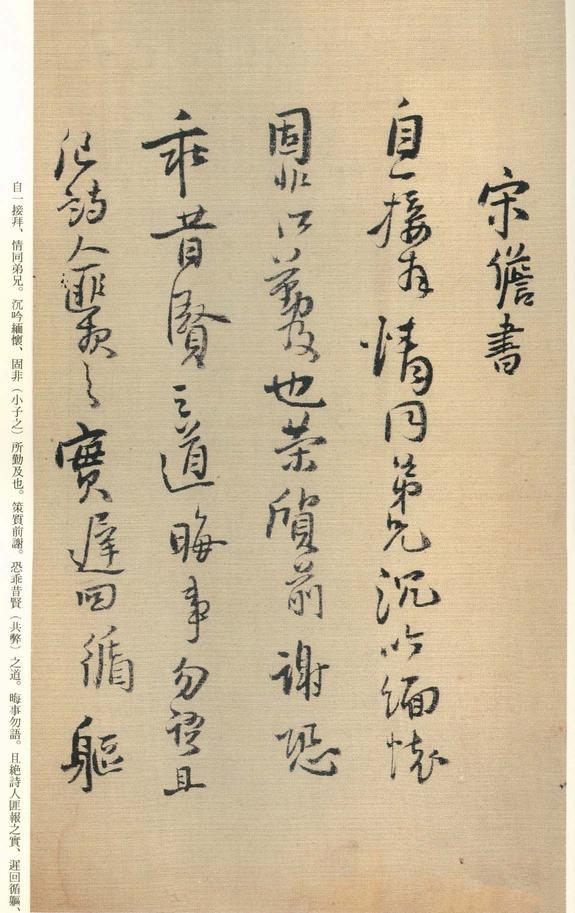 宋儋書
自一接拜情同弟兄沉吟緬懷
固非所勤及也策質前謝恐
乖昔賢之道晦事勿語且
絶詩人匪報之實遲回循軀
自一接拜、情同弟兄。沉吟緬懷、固非（小子之）所勤及也。策質前謝。恐乖昔賢（共弊）之道。晦事勿語。且絶詩人匪報之實、遲回循軀、